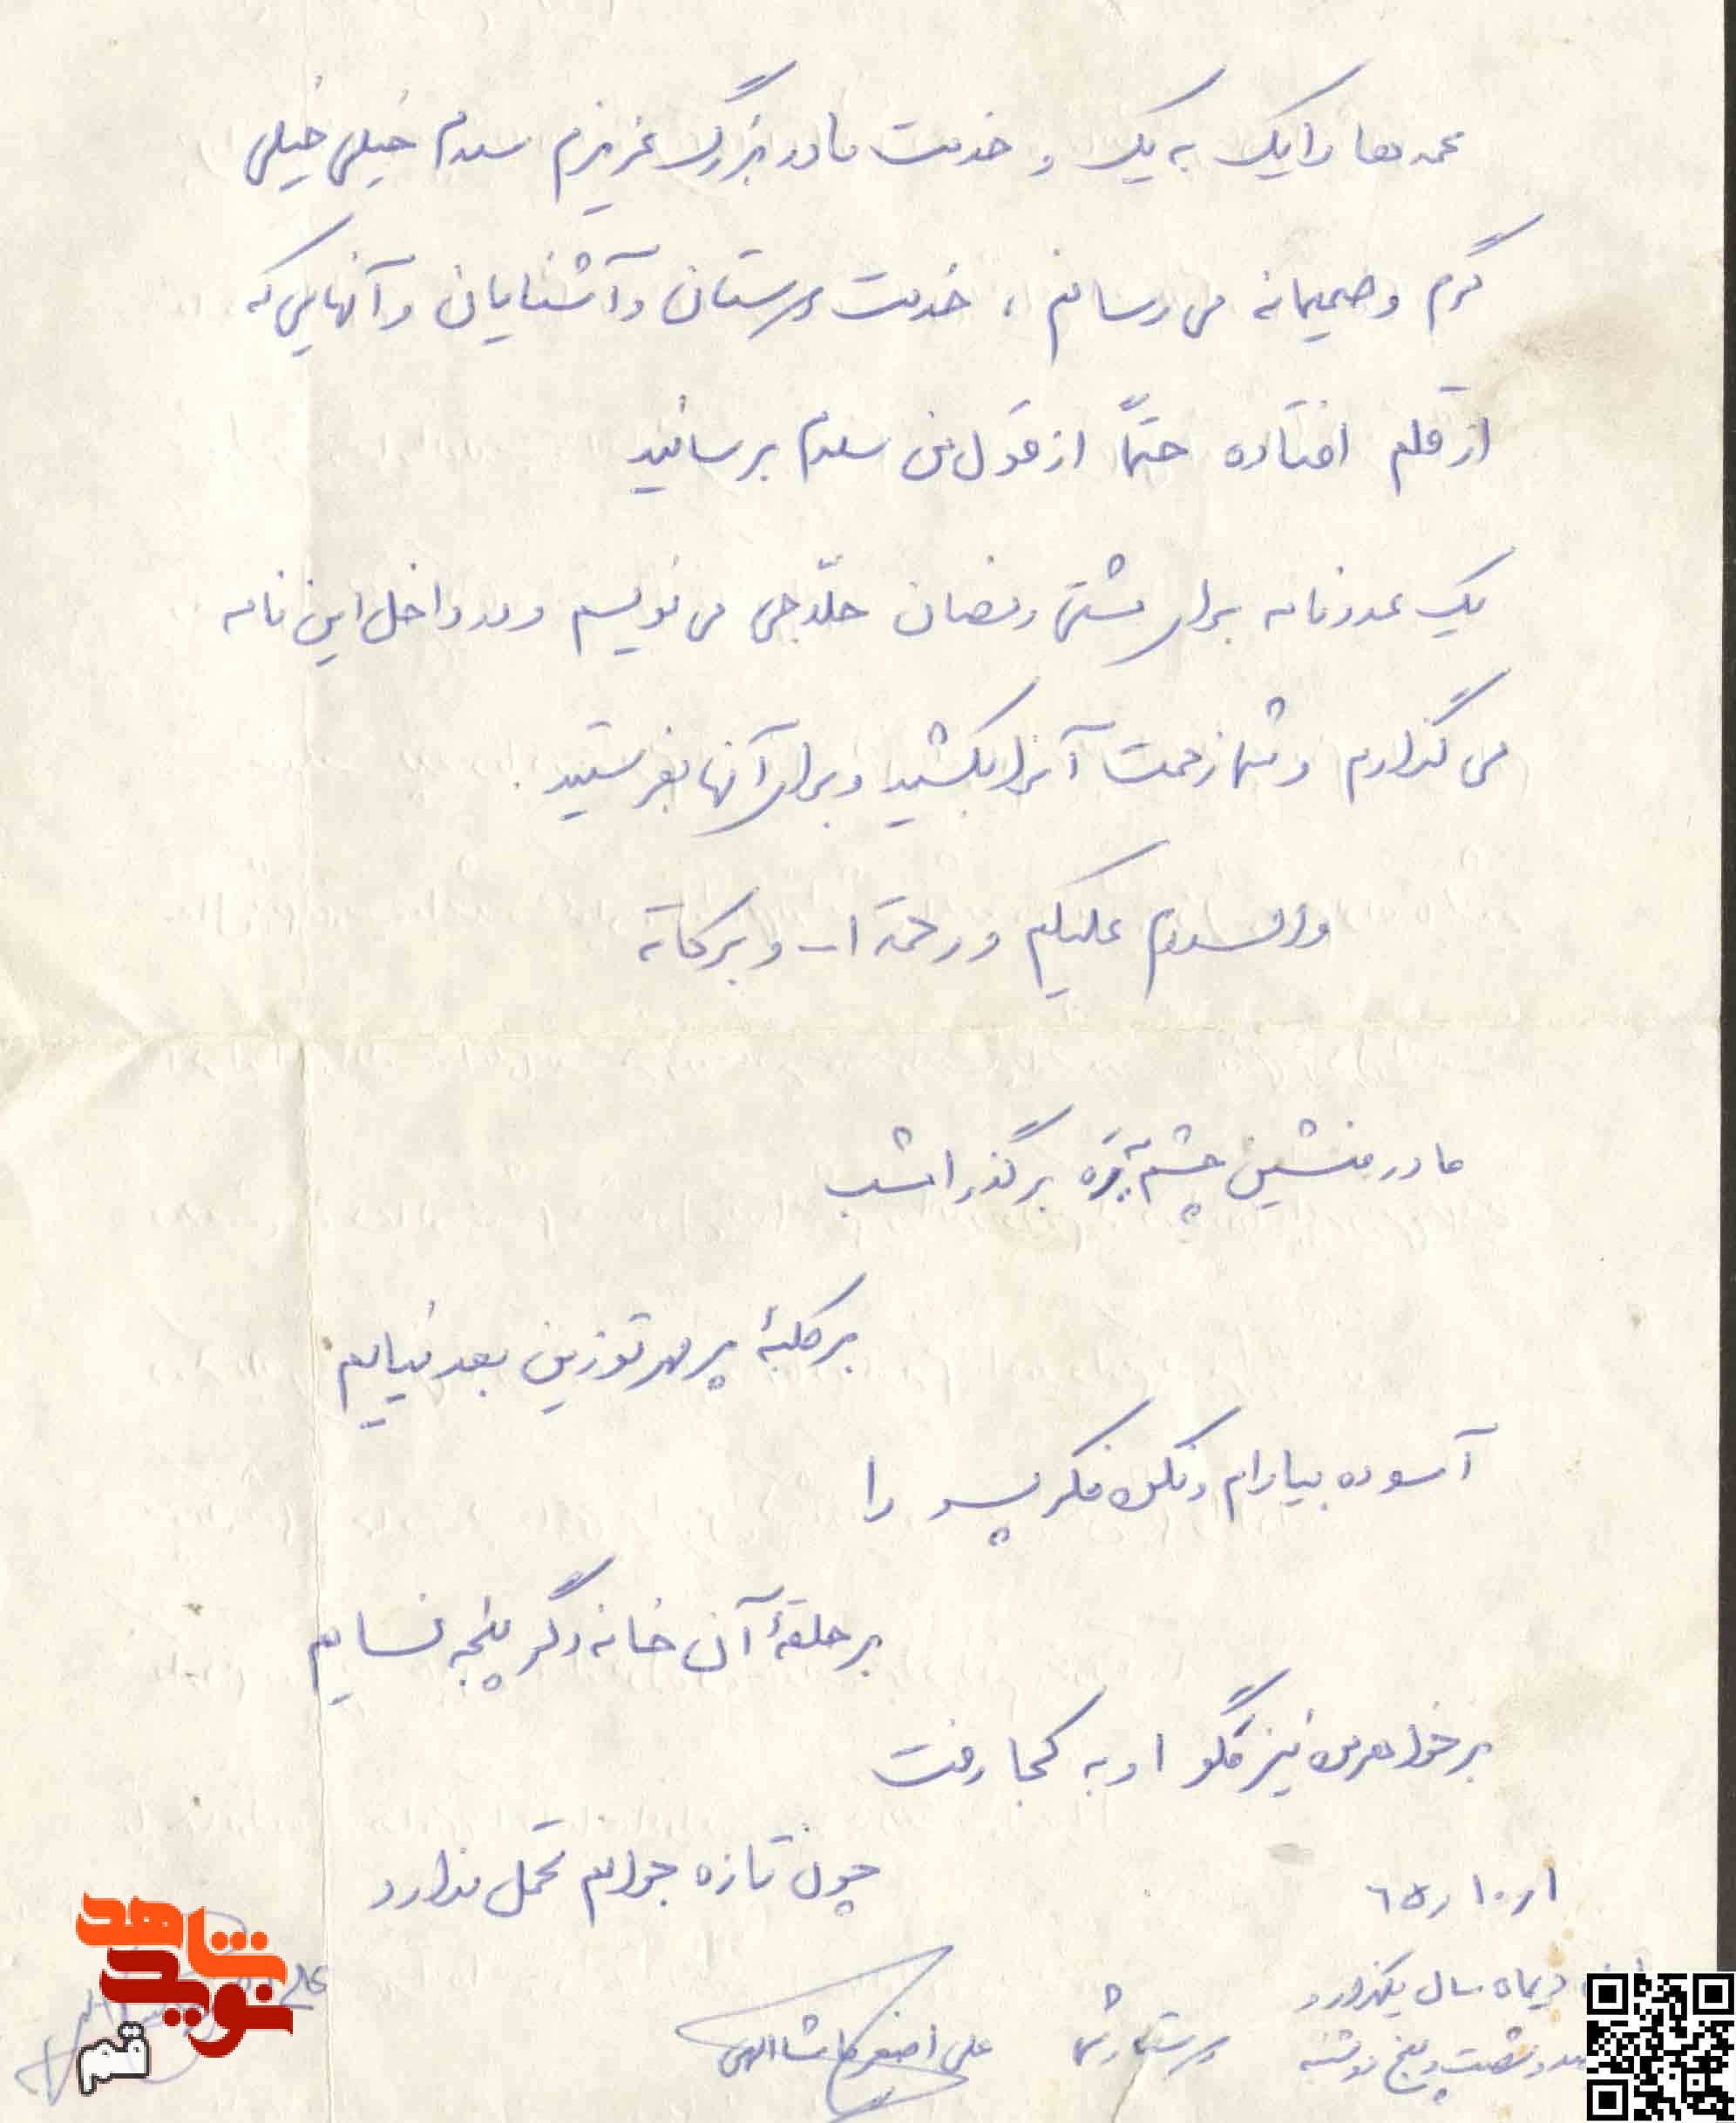 عمه ها را یک به یک و خدمت مادر بزرگ عزیزم سلام خیلی خیلی
گرم و صمیمانه می رسانم ، خدمت دوستان و آشنایان و آنهایی که
از قلم افتاده حتماً از قول من سلام برسانید
یک عدد نامه برای مشتی رمضان حلّاجی می نویسم و در داخل این نامه
می گذارم و شما زحمت آنرا بکشید و برای آنها بفرستید .
والسلام علیکم و رحمة ا... و برکاته
مادر منشین چشم بره بر گذر امشب
بر کلبهٔ پر مهر تو زین بعد نیایم
آسوده بیارام و نکن فکر پسر را
بر حلقهٔ آن خانه دگر پنجه نسایم
بر خواهر من نیز مگو او به کجا رفت
چون تازه جوانم تحمل ندارد
۶۵/۱۰/۱
دیماه سال یکهزار و
صد و شصت و پنج نوشته
دوستدار شما
علی اصغر ماشاالهی
شاهد
نوید
قم